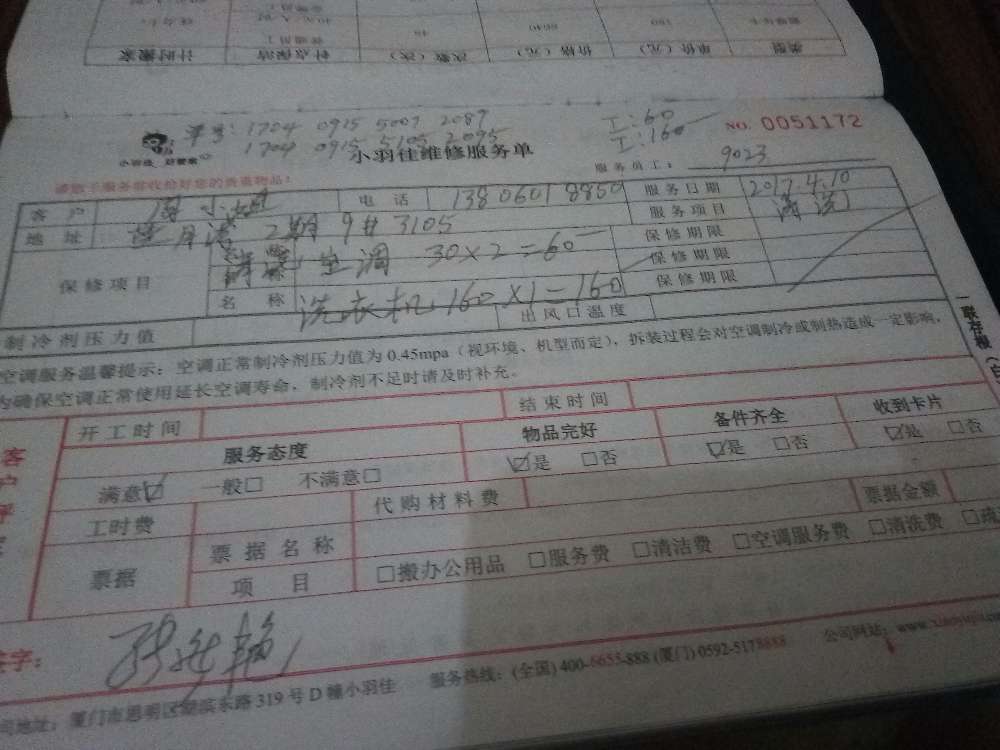 类型 单价（元） 价格（元） 次数（次） 钟点保洁 计时搬家
单号：1704 0915 5007 2087
1704 0915 5105 2095
工：60
工：160
NO. 0051172
小羽佳 好管家
小羽佳维修服务单
服务员工： 9023
客户 电话 13806018850 服务日期 2017.4.10
地址 2期 9# 3105 服务项目 清洗
保修项目 空调 30×2=60 保修期限
保修期限
名称 洗衣机 160×1=160 保修期限
制冷剂压力值 出风口温度
空调服务温馨提示：空调正常制冷剂压力值为0.45mpa（视环境、机型而定），拆装过程会对空调制冷或制热造成一定影响，
为确保空调正常使用延长空调寿命，制冷剂不足时请及时补充。
一联存根
客户
开工时间 结束时间
服务态度 物品完好 备件齐全 收到卡片
满意☑ 一般□ 不满意□ ☑是 □否 ☑是 □否 ☑是 □否
工时费 代购材料费 票据金额
票据 票据名称
项目 □搬办公用品 □服务费 □清洁费 □空调服务费 □清洗费 □疏
签字：
地址：厦门市思明区 东路319号D幢小羽佳 服务热线：(全国) 400-6655-888 (厦门) 0592-5178888 公司网站：www.xiaoyujia